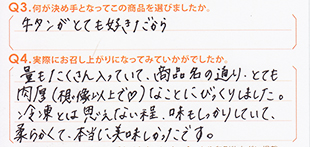 Q3.何が決め手となってこの商品を選びましたか。
牛タンがとても好きだから
Q4.実際にお召し上がりになってみていかがでしたか。
量もたくさん入っていて、商品名の通り、とても
肉厚(想像以上で♡)なことにびっくりしました。
冷凍とは思えない程、味もしっかりしていて、
柔らかくて、本当に美味しかったです。